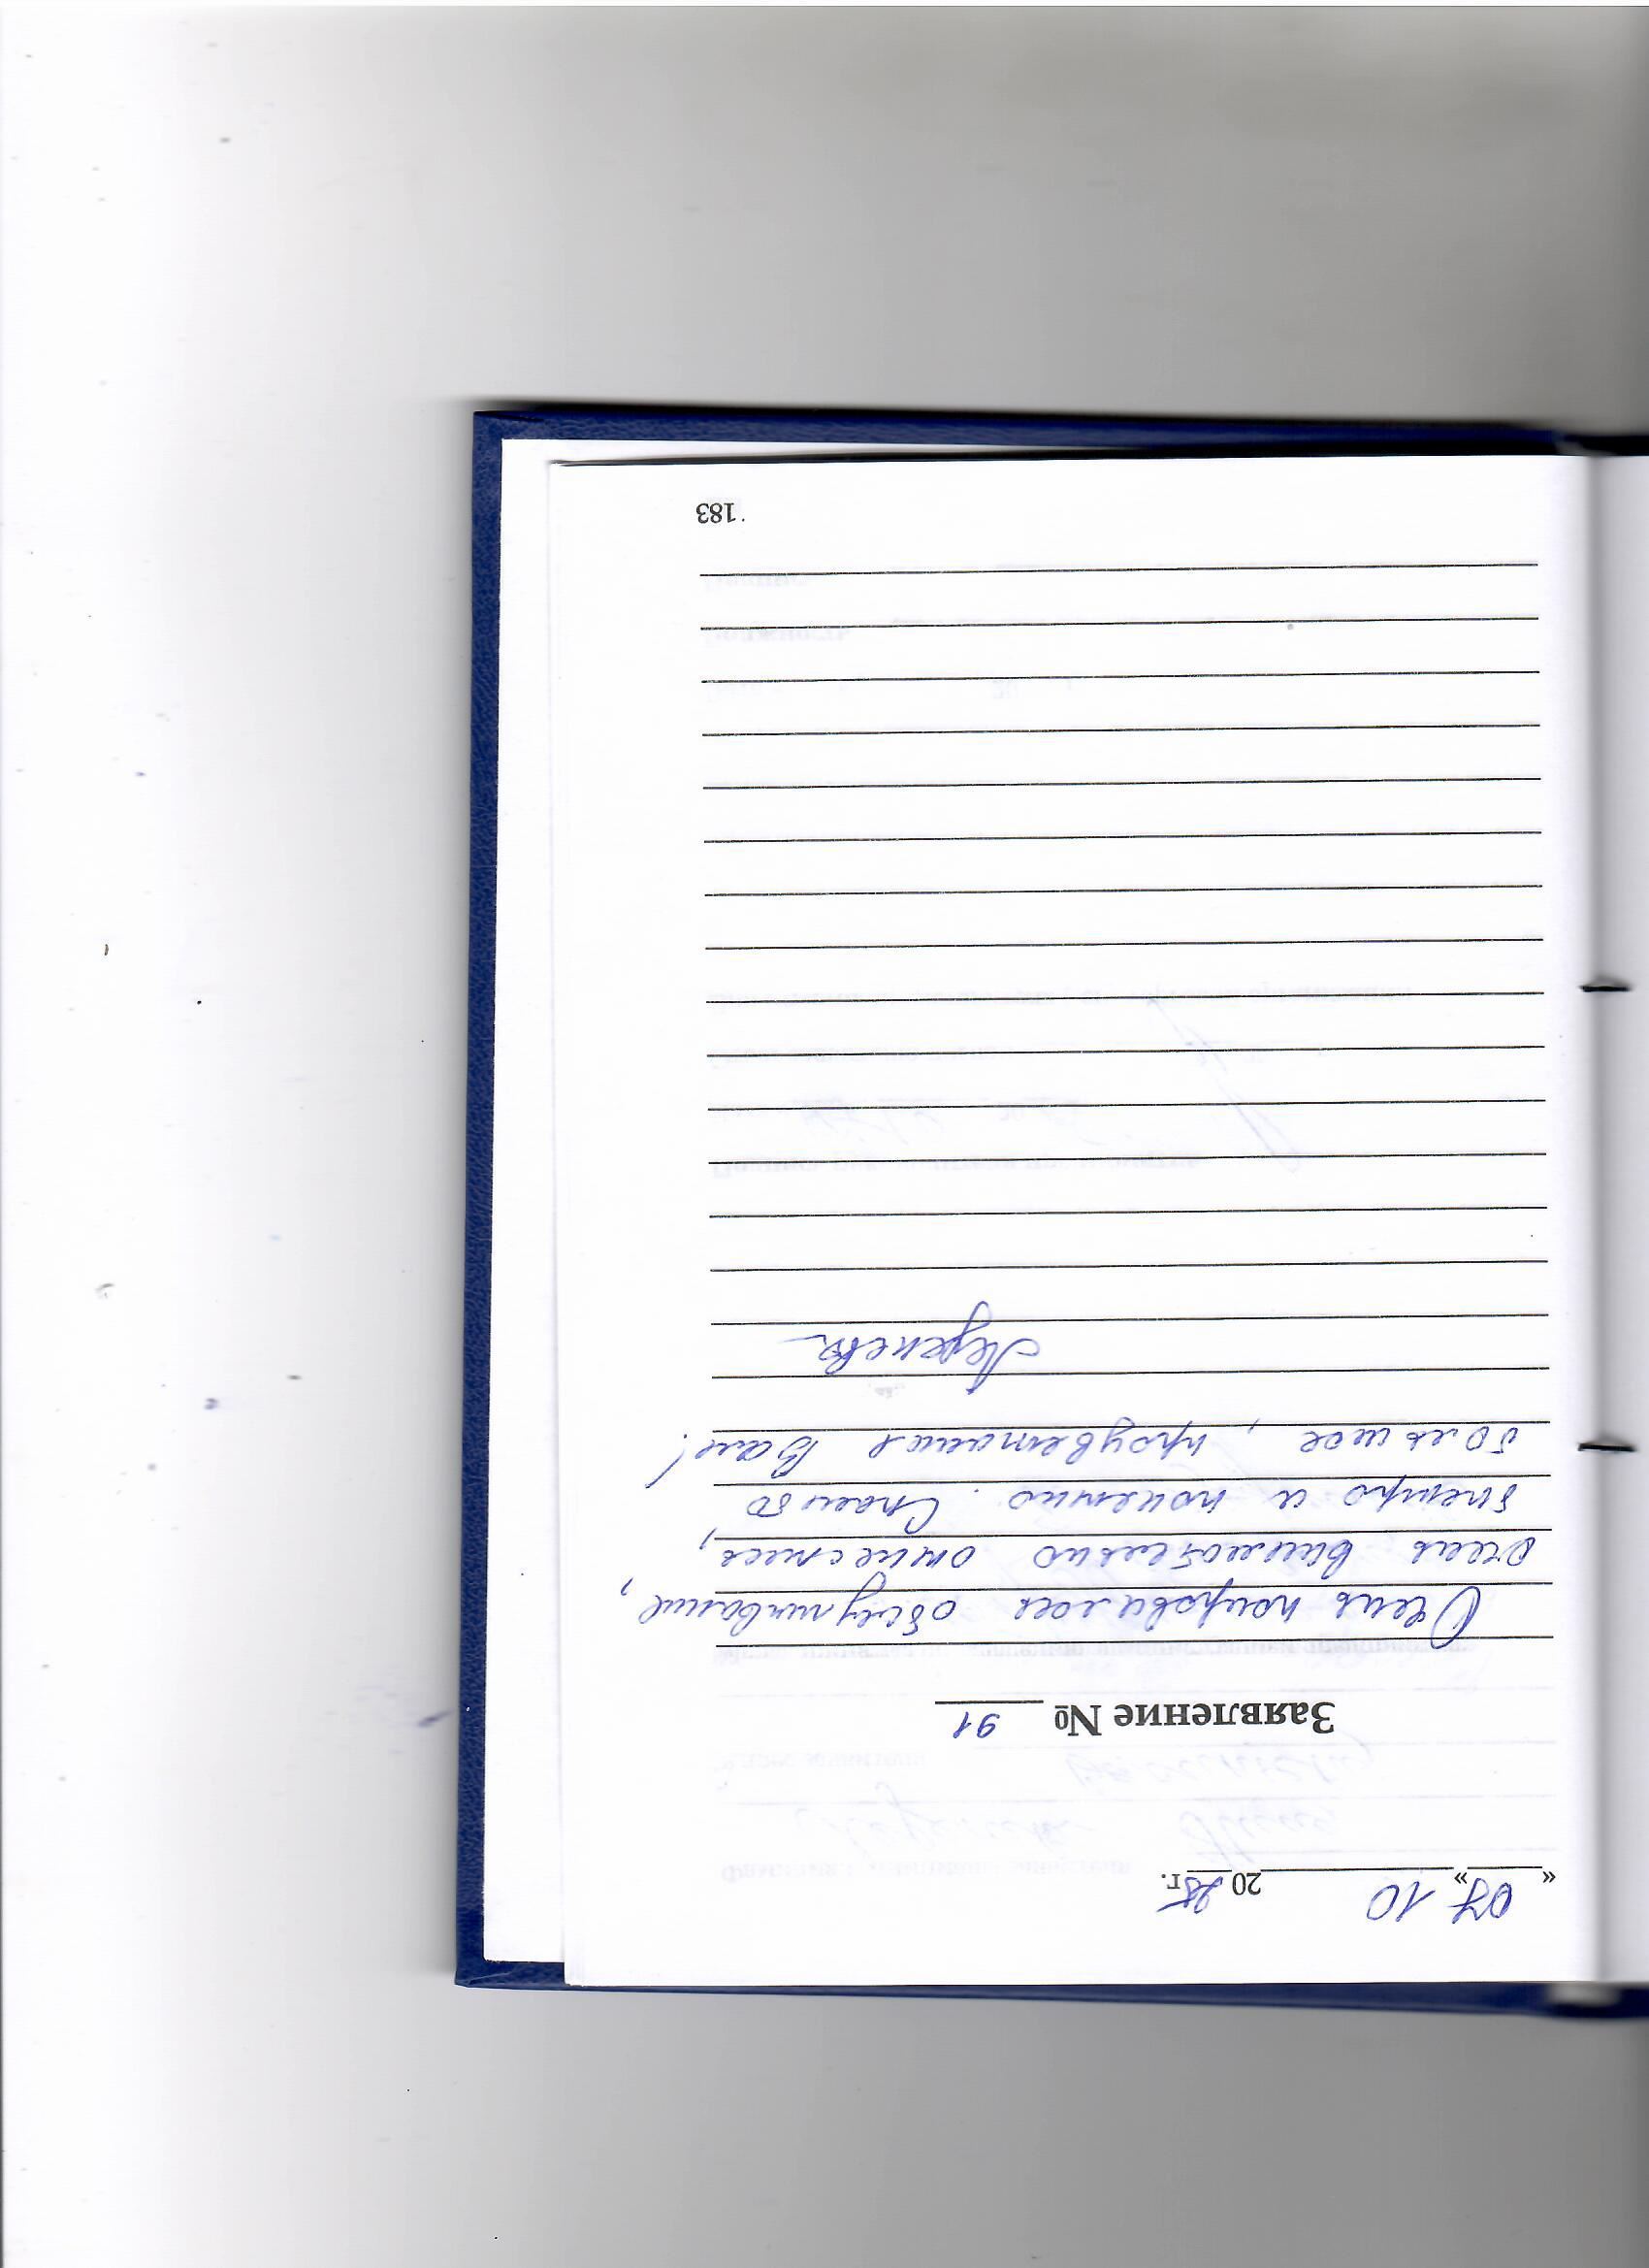 «07» 10 2025 г.
Заявление № 91
Очень понравилось обслуживание,
очень внимательно отнеслись,
быстро и понятно. Спасибо
большое, процветания Вам!
183